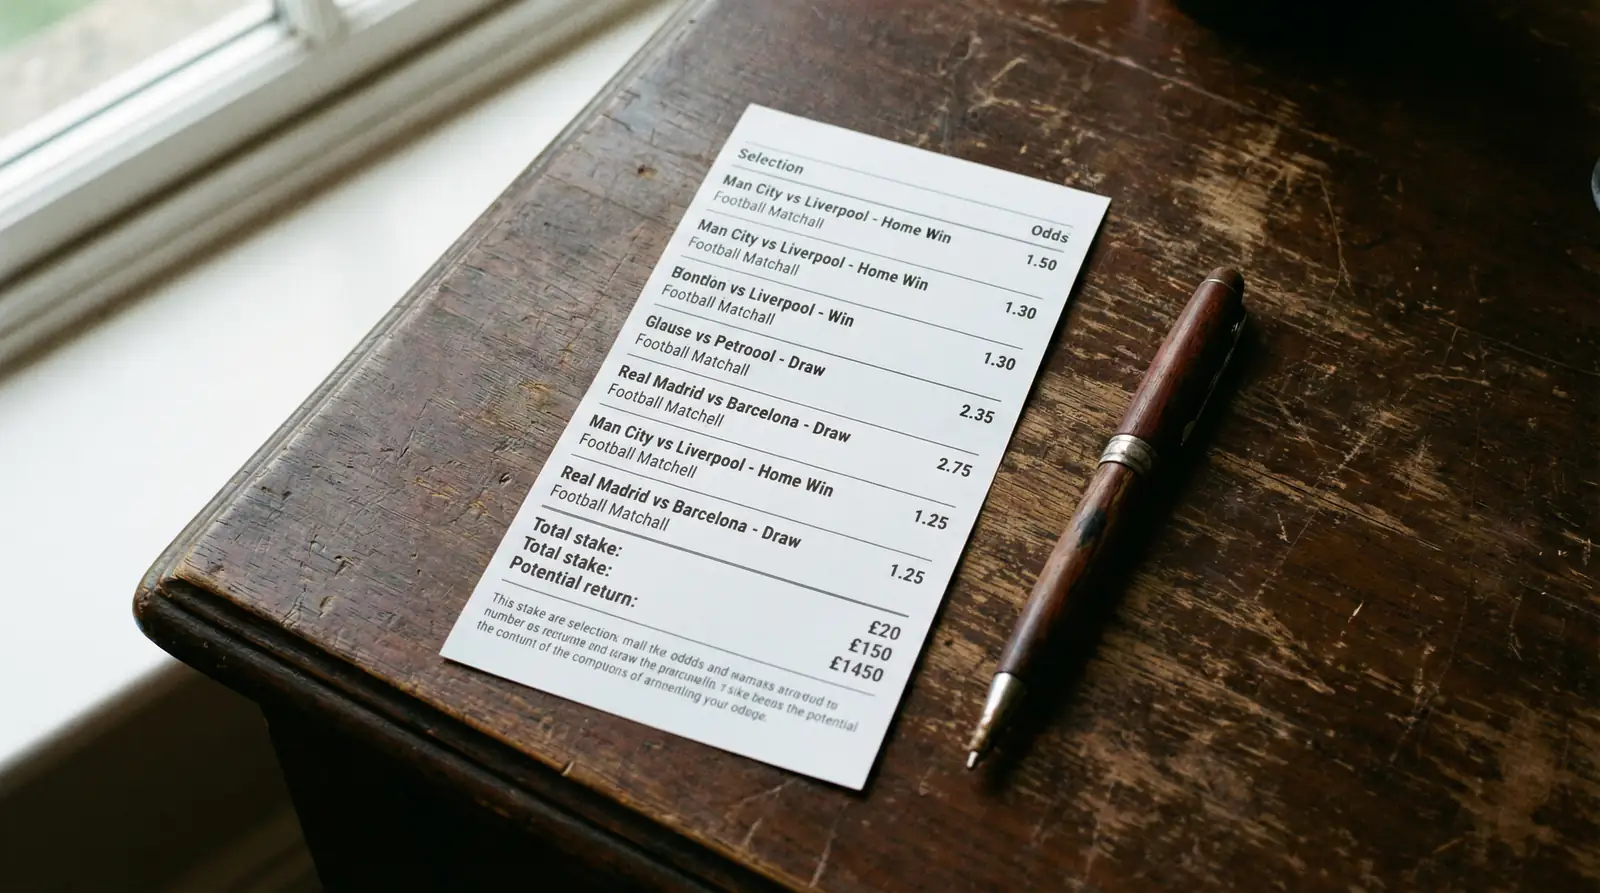 Selection
Odds
Man City vs Liverpool - Home Win
Football Matchall
1.50
Man City vs Liverpool - Home Win
Football Matchall
1.30
Bontlon vs Liverpool - Win
Football Matchall
1.30
Glause vs Petroool - Draw
Football Matchall
2.35
Real Madrid vs Barcelona - Draw
Football Matchell
2.75
Man City vs Liverpool - Home Win
Football Matchell
1.25
Real Madrid vs Barcelona - Draw
Football Matchall
1.25
Total stake:
£20
Total stake:
£150
Potential return:
£1450
This stake are selection, mall the oddds and to
number as and the the potential
the contunt of the of your